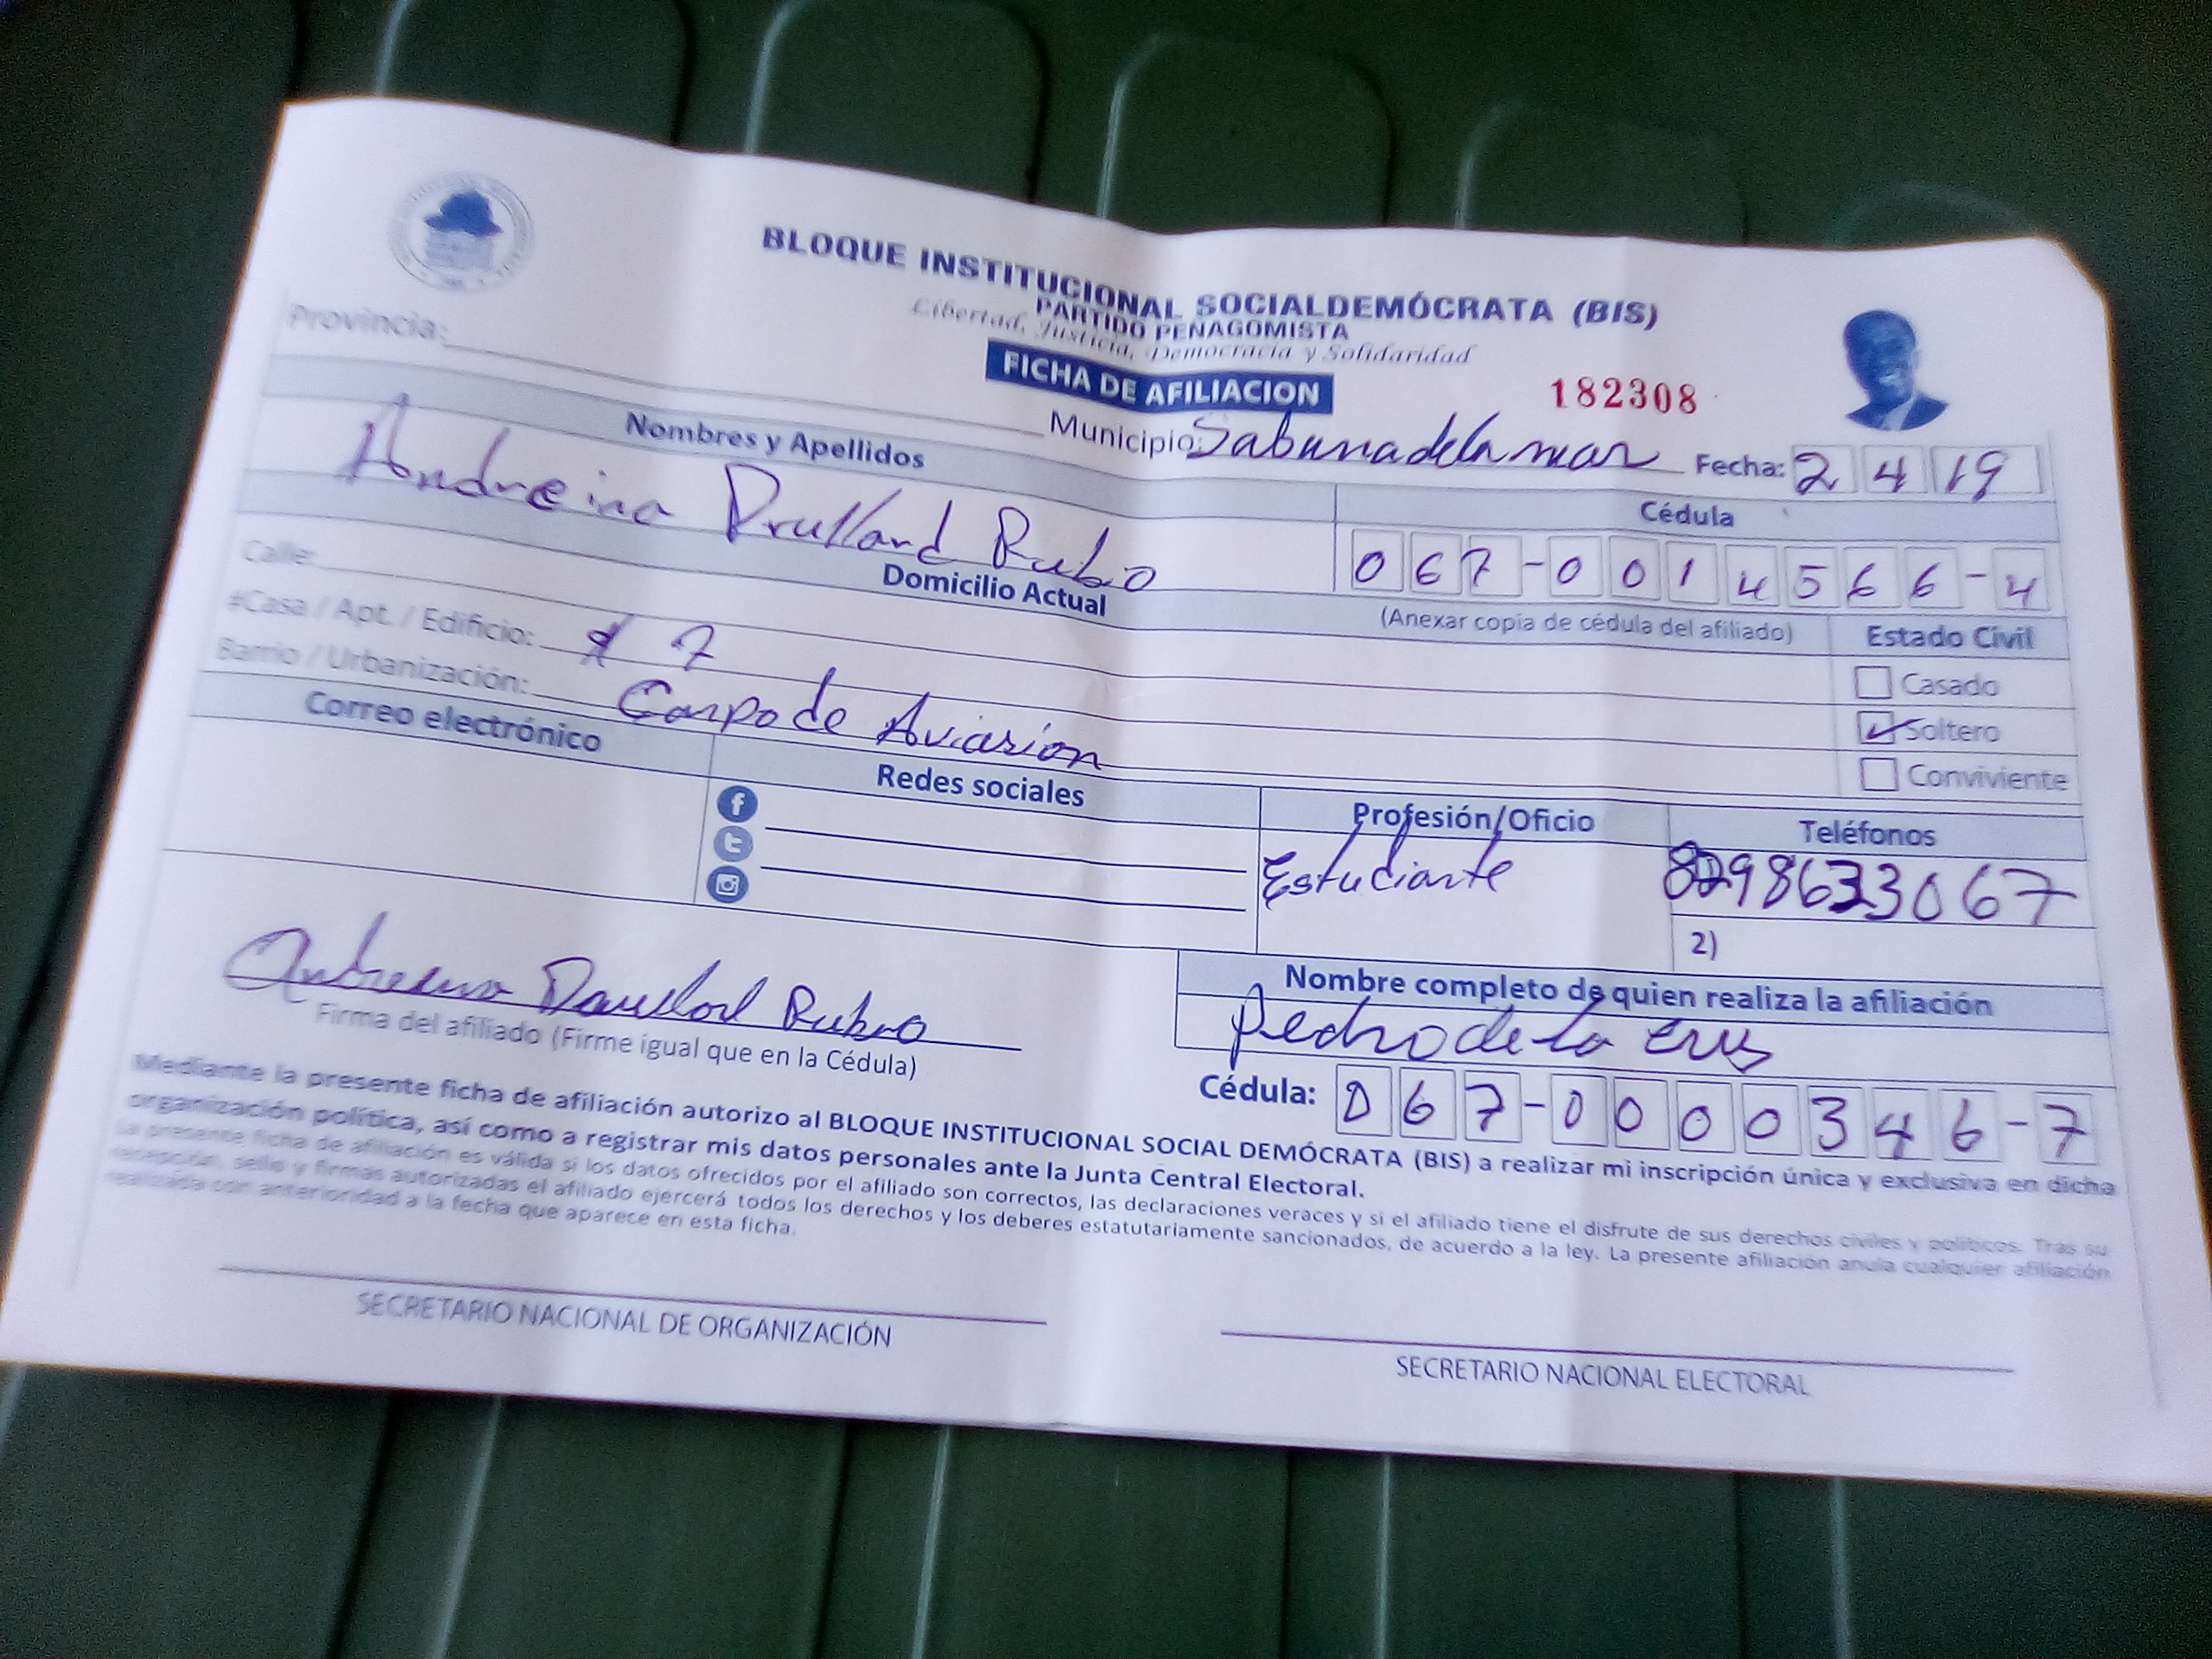 BLOQUE INSTITUCIONAL SOCIALDEMÓCRATA (BIS)
PARTIDO PEÑAGOMISTA
Libertad, Justicia, Democracia y Solidaridad
FICHA DE AFILIACION
182308
Provincia:
Municipio: Sabana de la mar Fecha: 2 4 19
Nombres y Apellidos
Cédula
Andreina Drullard Rubio
067-0014566-4
(Anexar copia de cédula del afiliado)
Domicilio Actual
Estado Civil
Calle:
Casado
#Casa / Apt. / Edificio: # 7
Soltero
Barrio / Urbanización: Canpo de Aviasion
Conviviente
Correo electrónico
Redes sociales
Profesión/Oficio
Teléfonos
Estudiante
8298633067
2)
Firma del afiliado (Firme igual que en la Cédula)
Nombre completo de quien realiza la afiliación
Pedro de la Crus
Cédula: 067-0000346-7
Mediante la presente ficha de afiliación autorizo al BLOQUE INSTITUCIONAL SOCIAL DEMÓCRATA (BIS) a realizar mi inscripción única y exclusiva en dicha
organización política, así como a registrar mis datos personales ante la Junta Central Electoral.
La presente ficha de afiliación es válida si los datos ofrecidos por el afiliado son correctos, las declaraciones veraces y si el afiliado tiene el disfrute de sus derechos civiles y políticos. Tras su
recepción, sello y firmas autorizadas el afiliado ejercerá todos los derechos y los deberes estatutariamente sancionados, de acuerdo a la ley. La presente afiliación anula cualquier afiliación
realizada con anterioridad a la fecha que aparece en esta ficha.
SECRETARIO NACIONAL DE ORGANIZACIÓN
SECRETARIO NACIONAL ELECTORAL